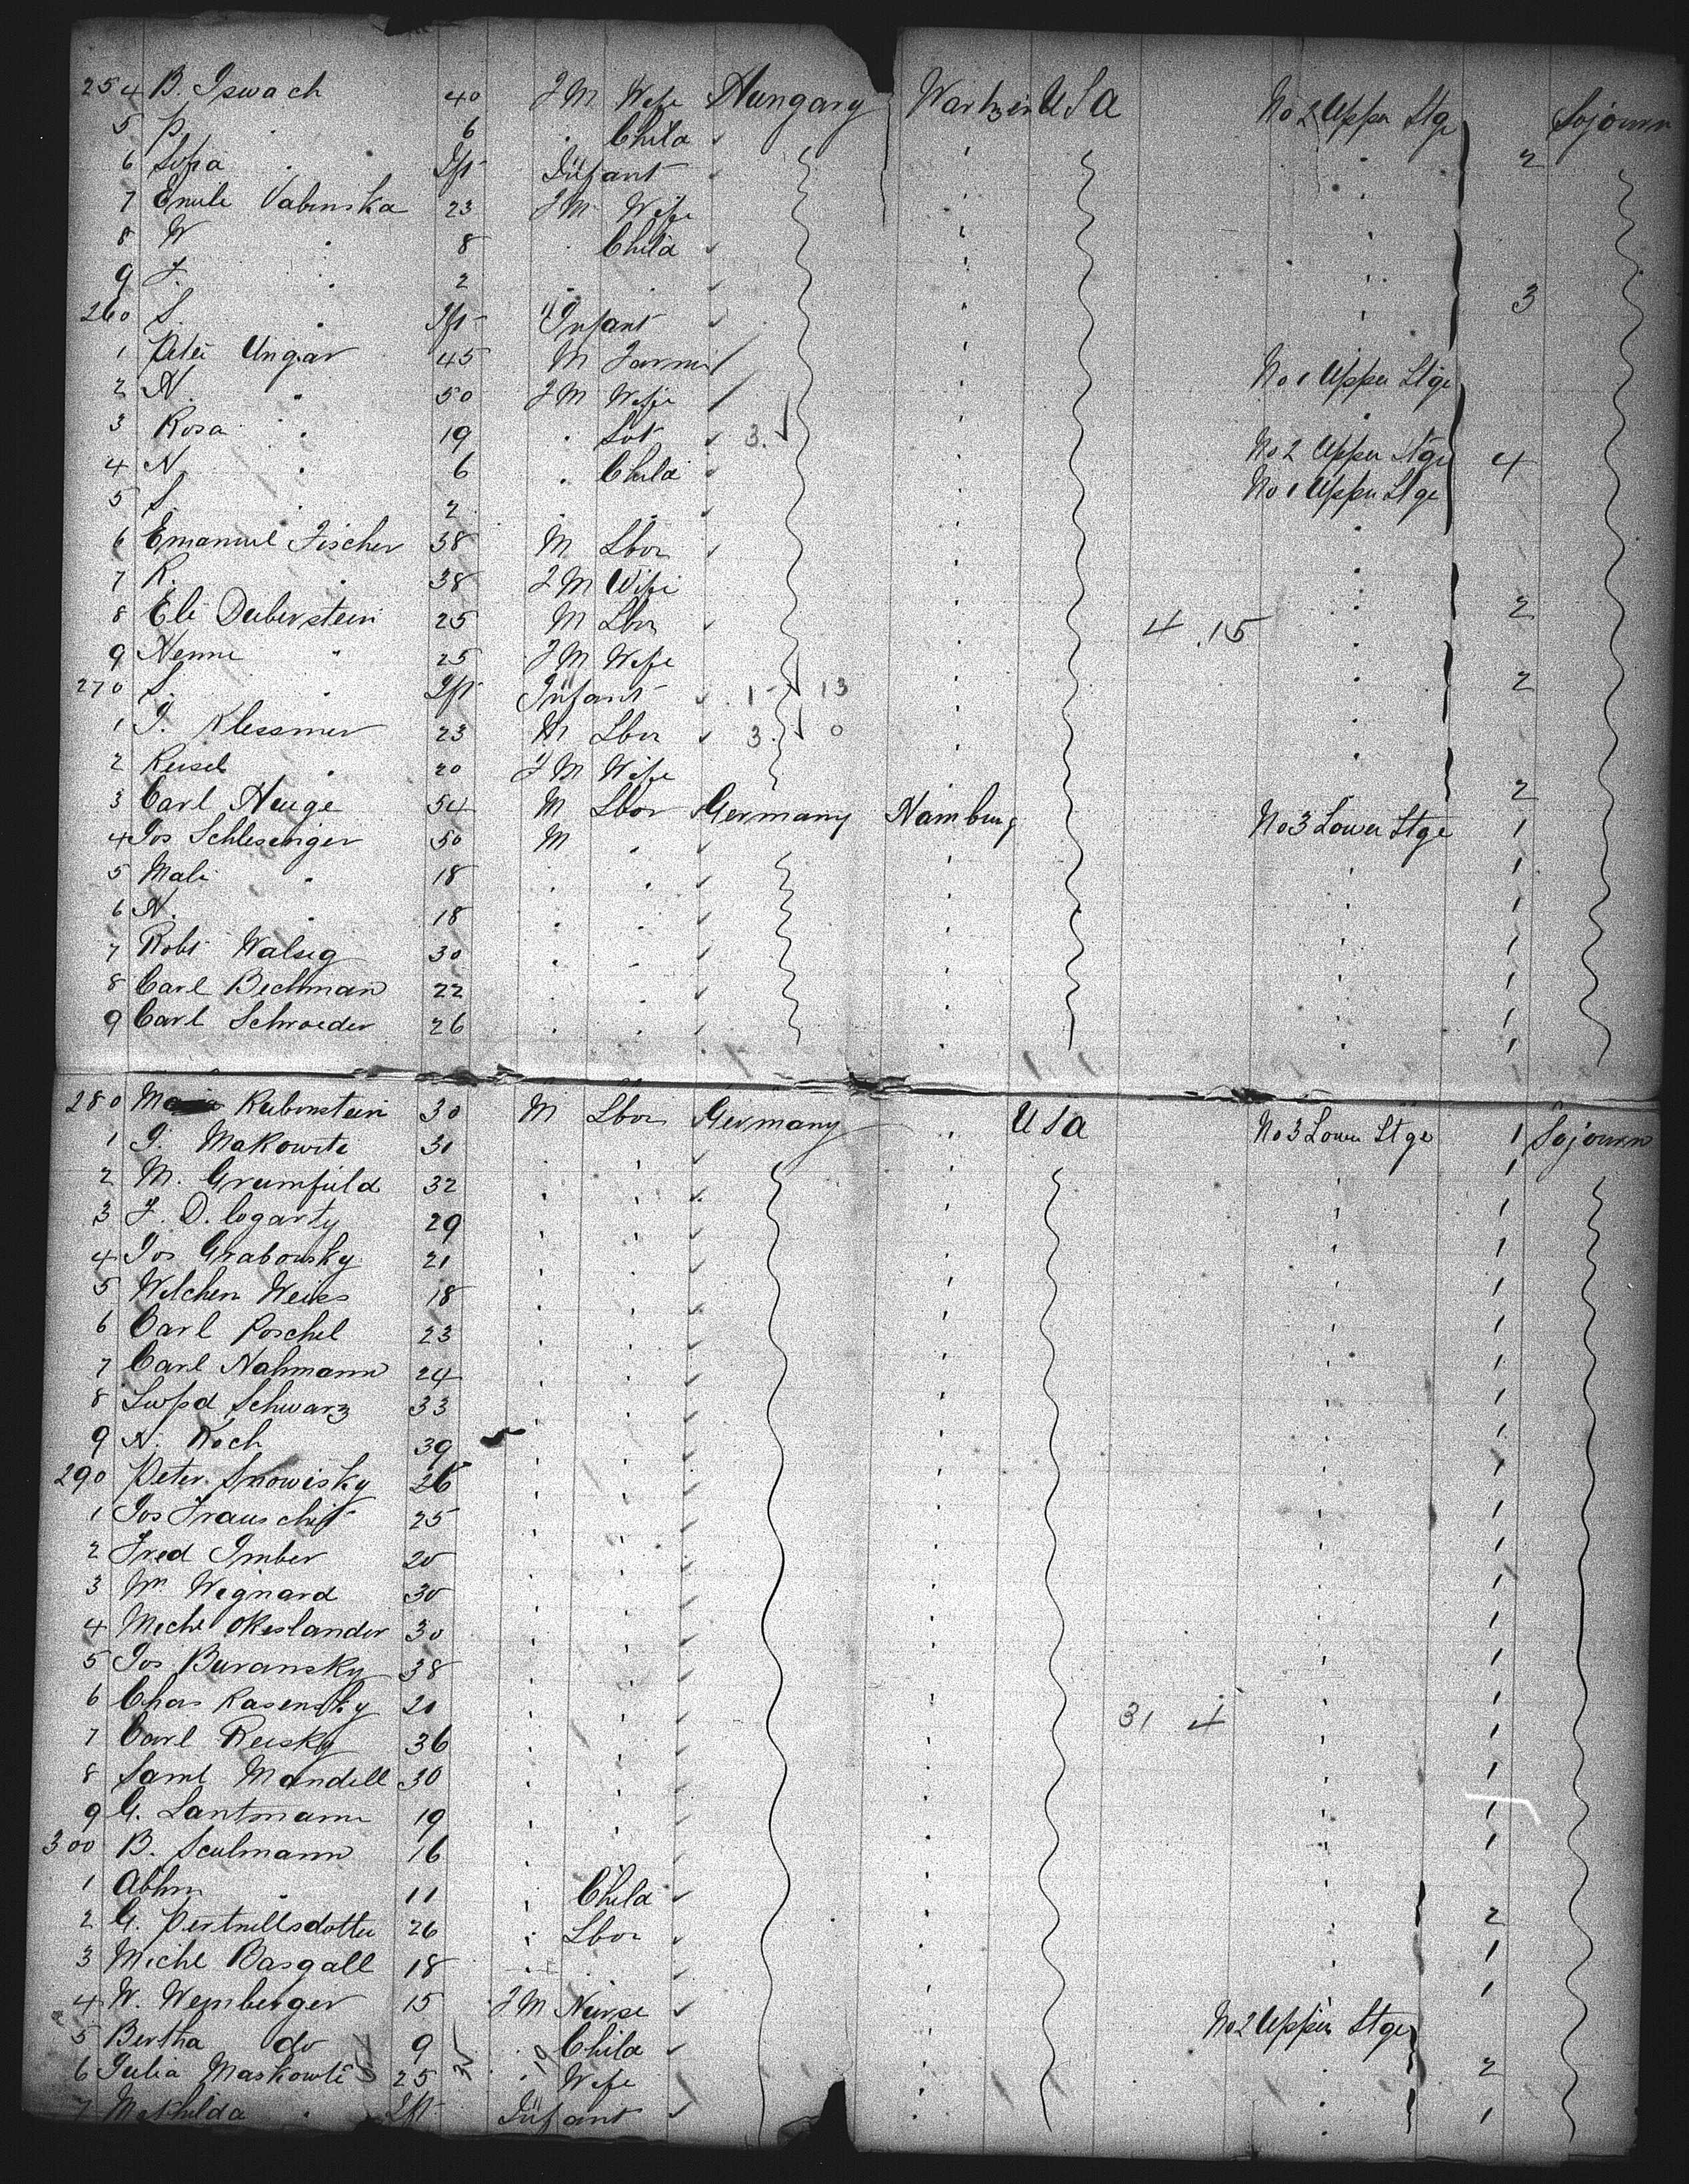 254 B. Iswach 40 FM Wife Hungary USA No 2 Upper Stge Sojourn
5 P. " 6 " Child
6 Sofia " Ift Infant 2
7 Emile Vabinska 23 FM Wife
8 W " 8 " Child
9 J. " 2 " "
260 S. " Ift Infant 3
1 Peter Ungar 45 M Farmer No 1 Upper Stge
2 N. " 50 FM Wife "
3 Rosa " 19 " 3. No 2 Upper Stge
4 N. " 6 " Child No 1 Upper Stge 4
5 S. " 2 " "
6 Emanuel Fischer 38 M Lbor
7 R. " 38 FM Wife
8 Eli Duberstein 25 M Lbor 4.15 2
9 Henne " 25 FM Wife
270 S. " Ift Infant 1 13 2
1 J. Klessmer 23 M Lbor 3. 0
2 Reisel " 20 FM Wife
3 Carl Hauge 54 M Lbor Germany Hamburg No 3 Lower Stge 1
4 Jos Schlesenger 50 M " 1
5 Mali " 18 " " 1
6 N. " 18 " " 1
7 Robt Walsig 30 " " 1
8 Carl Bechman 22 " " 1
9 Carl Schroeder 26 " " 1
280 Rubinstein 30 M Lbor Germany " USA No 3 Lower Stge 1 Sojourn
1 J. Makowite 31 " " 1
2 M. Grumfield 32 " " 1
3 J. D. Cogarty 29 " " 1
4 Jos Grabowsky 21 " " 1
5 Welchen Weiss 18 " " 1
6 Carl Poschel 23 " " 1
7 Carl Nahmann 24 " " 1
8 Lwpd Schwarz 33 " " 1
9 N. Koch 39 " " 1
290 Peter Snowisky 26 " " 1
1 Jos Frauschist 25 " " 1
2 Fred Imber 20 " " 1
3 Wm Wignard 30 " " 1
4 Michl Okeslander 30 " " 1
5 Jos Buransky 38 " " 1
6 Chas Rasensky 20 " " 31 4 1
7 Carl Reisky 36 " " 1
8 Saml Mandell 30 " " 1
9 G. Lantmann 19 " " 1
300 B. Sculmann 16 " " 1
1 Abhm " 11 " Child
2 G. Pertnellsdotter 26 " Lbor 2
3 Michl Basgall 18 " " 1
4 W. Wemberger 15 FM Nurse 1
5 Bertha do 9 " Child No 2 Upper Stge
6 Julia Maskowite 25 " Wife 2
7 Mathilda " Ift Infant 1